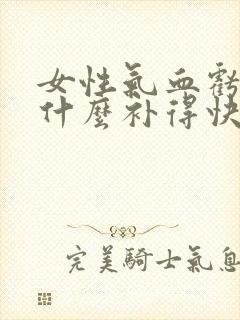 女性氣血虧
什麼补得快
完美騎士氣息